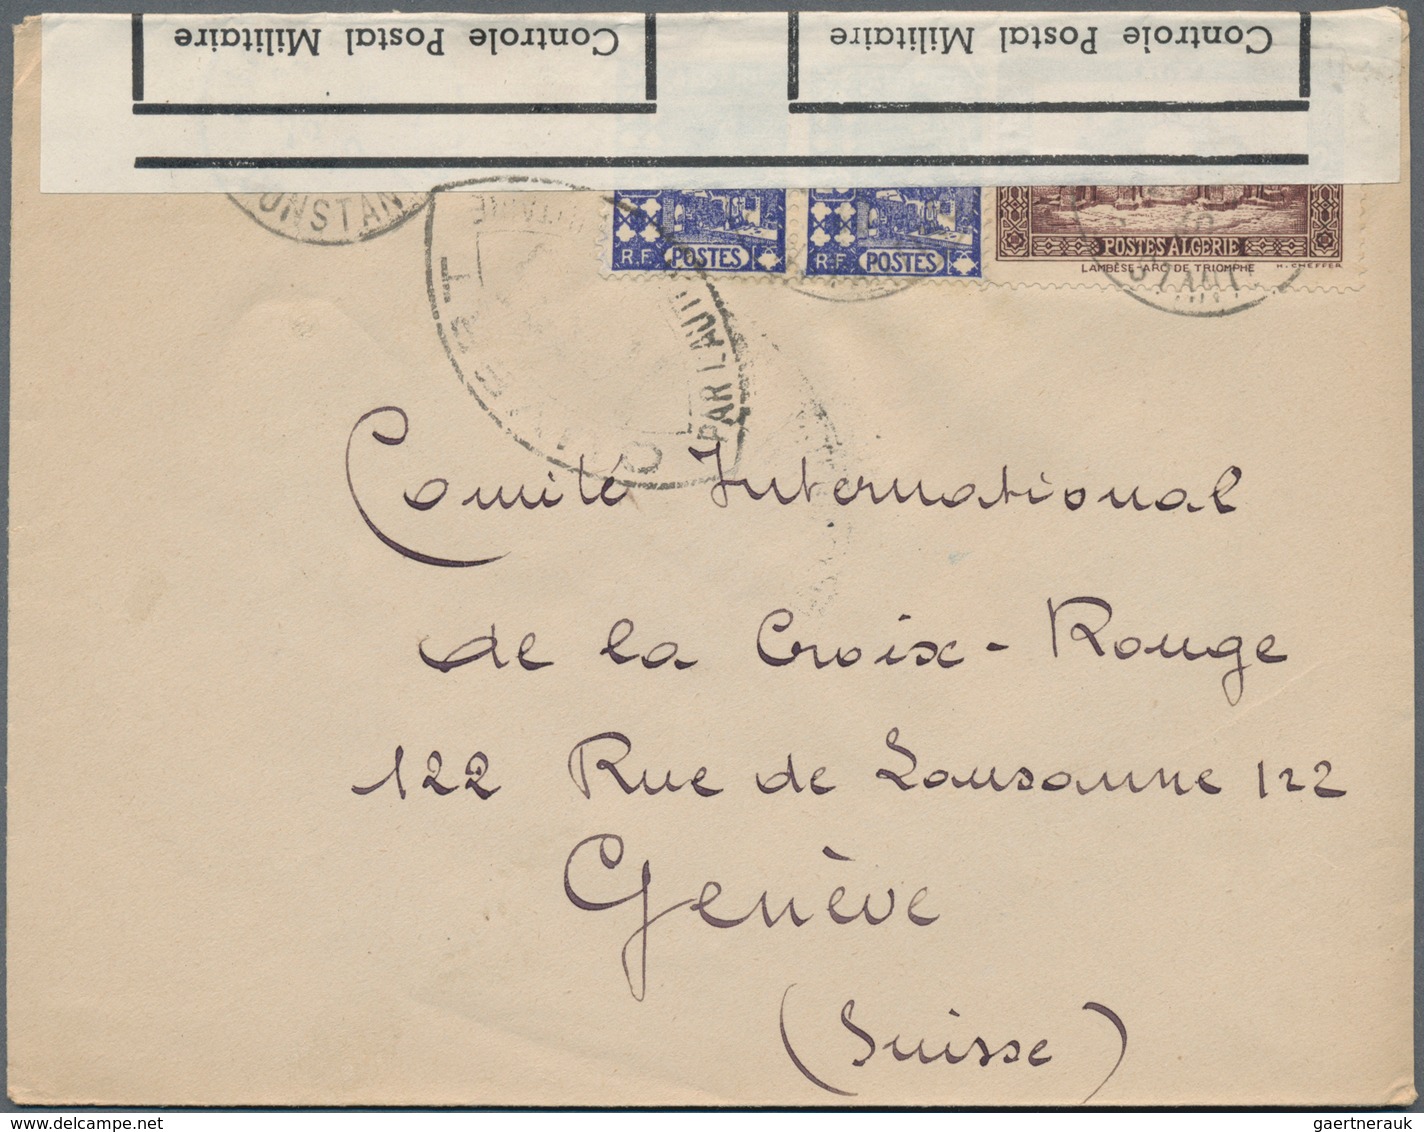 Controle Postal Militaire
Controle Postal Militaire
CONSTAN
R.F. POSTES
R.F. POSTES
POSTES ALGERIE
LAMBÈSE-ARC DE TRIOMPHE H. CHEFFER
OUVERT
PAR L'AUTORITÉ
Comité International
de la Croix-Rouge
122 Rue de Lausanne 122
Genève
(Suisse)
gaertnerauk